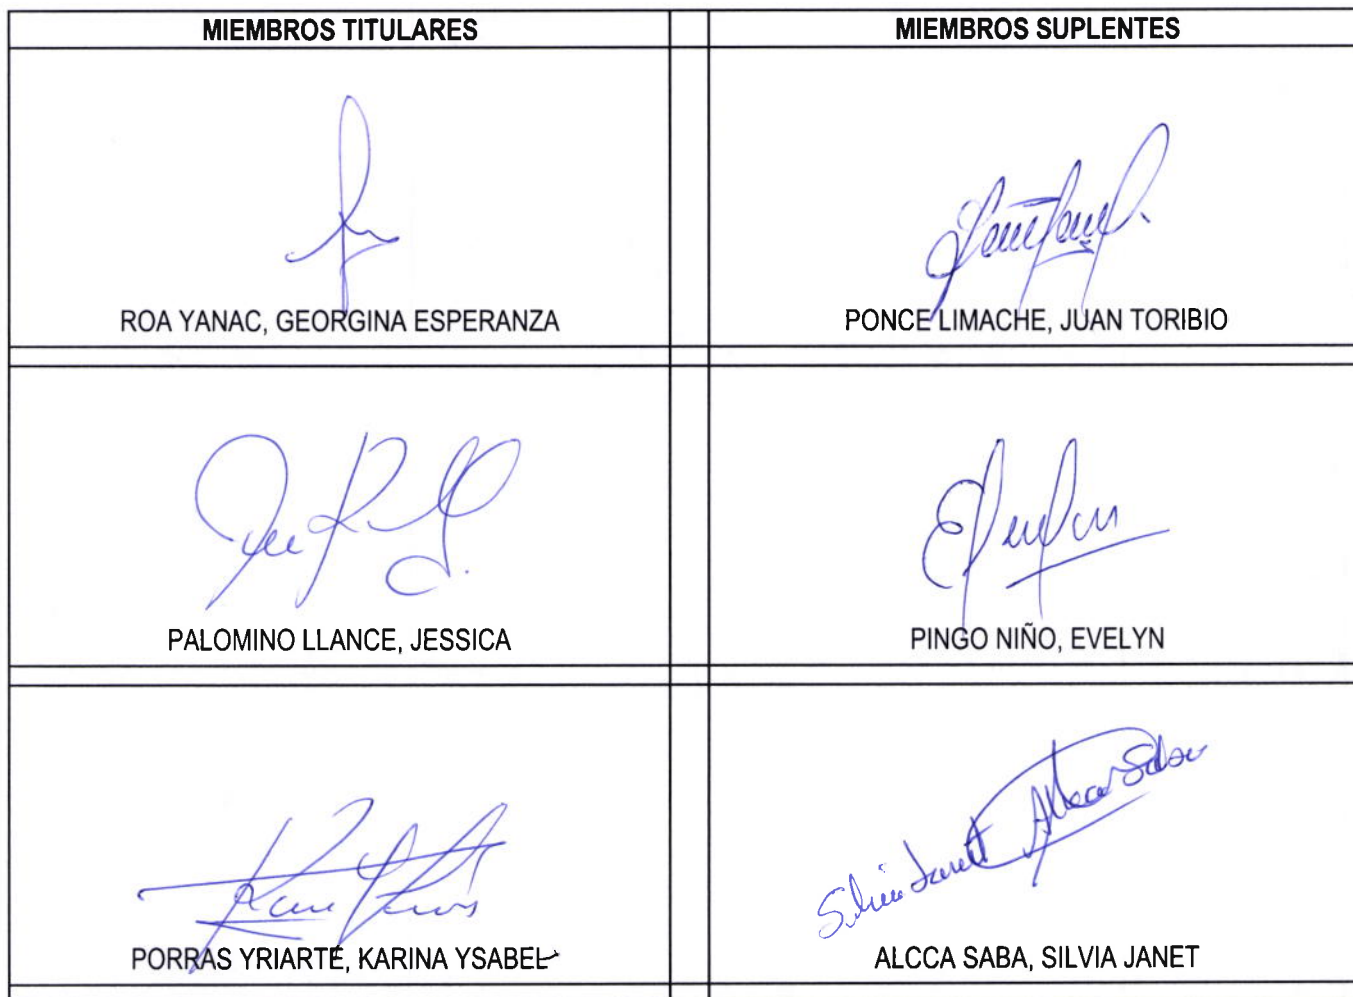 MIEMBROS TITULARES
MIEMBROS SUPLENTES
ROA YANAC, GEORGINA ESPERANZA
PONCE LIMACHE, JUAN TORIBIO
PALOMINO LLANCE, JESSICA
PINGO NIÑO, EVELYN
Silvia Janett Alcca Saba
PORRAS YRIARTE, KARINA YSABEL
ALCCA SABA, SILVIA JANET